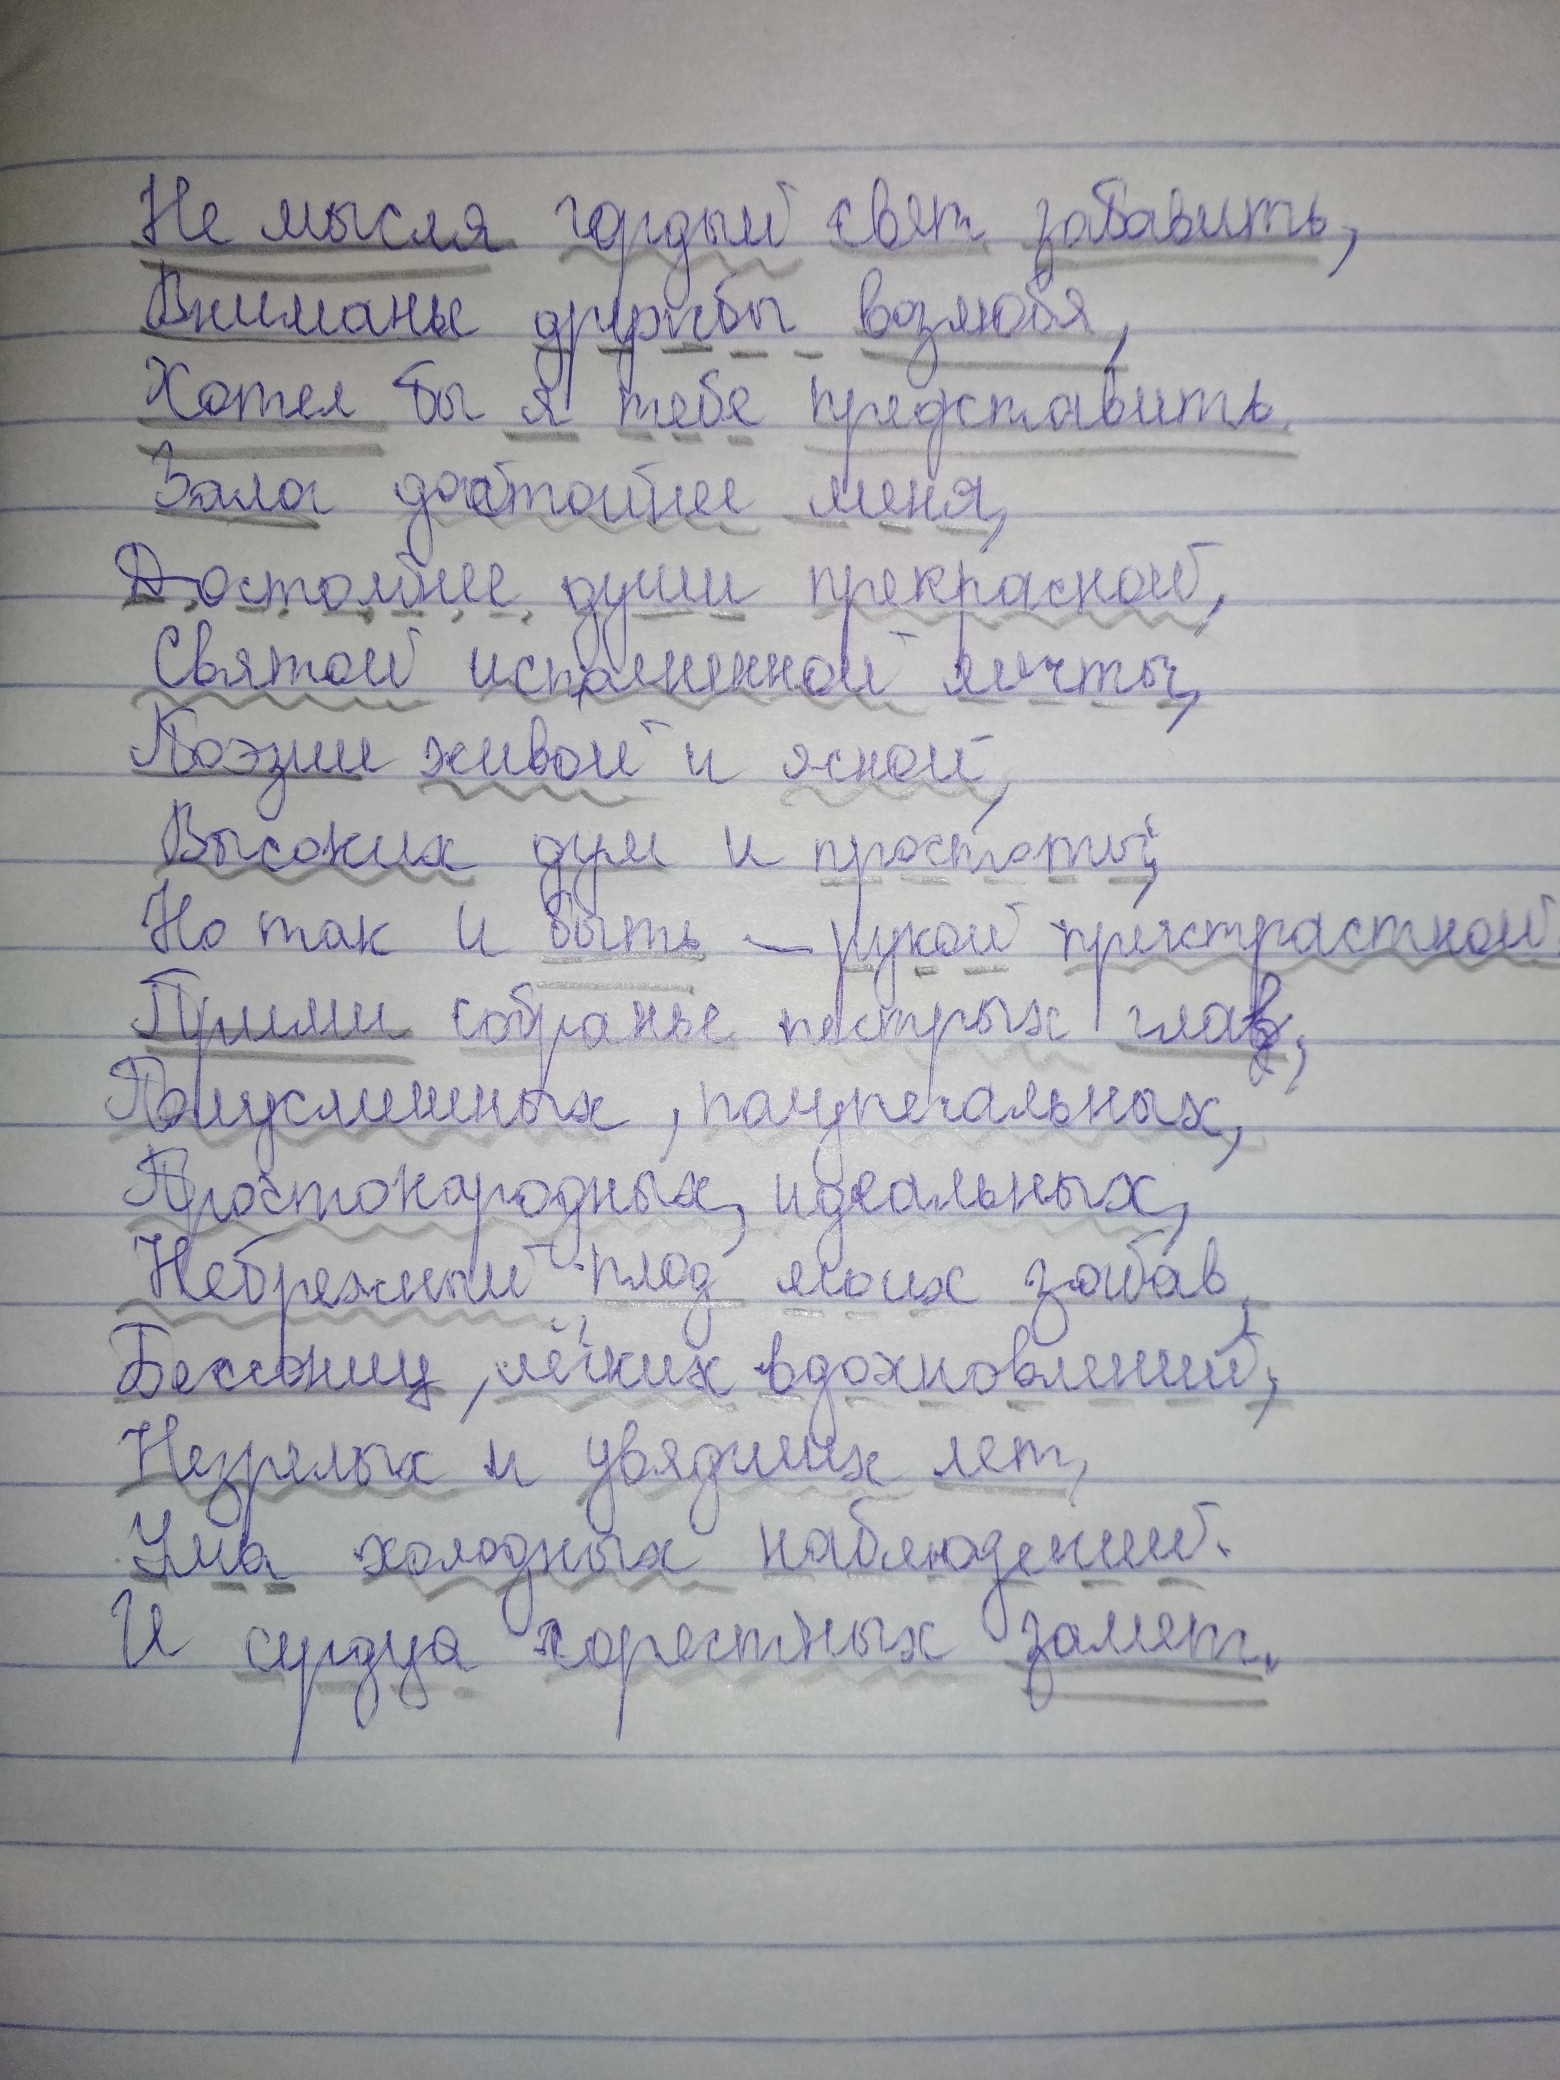 Не мысля гордый свет забавить,
Вниманье дружбы возлюбя,
Хотел бы я тебе представить
Залог достойнее меня,
Достойнее души прекрасной,
Святой исполненной мечты,
Поэзии живой и ясной,
Высоких дум и простоты;
Но так и быть – рукой пристрастной
Прими собранье пестрых глав,
Полусмешных, полупечальных,
Простонародных, идеальных,
Небрежный плод моих забав,
Бессониц, лёгких вдохновлений,
Незрелых и увядших лет,
Ума холодных наблюдений.
И сердца горестных замет.